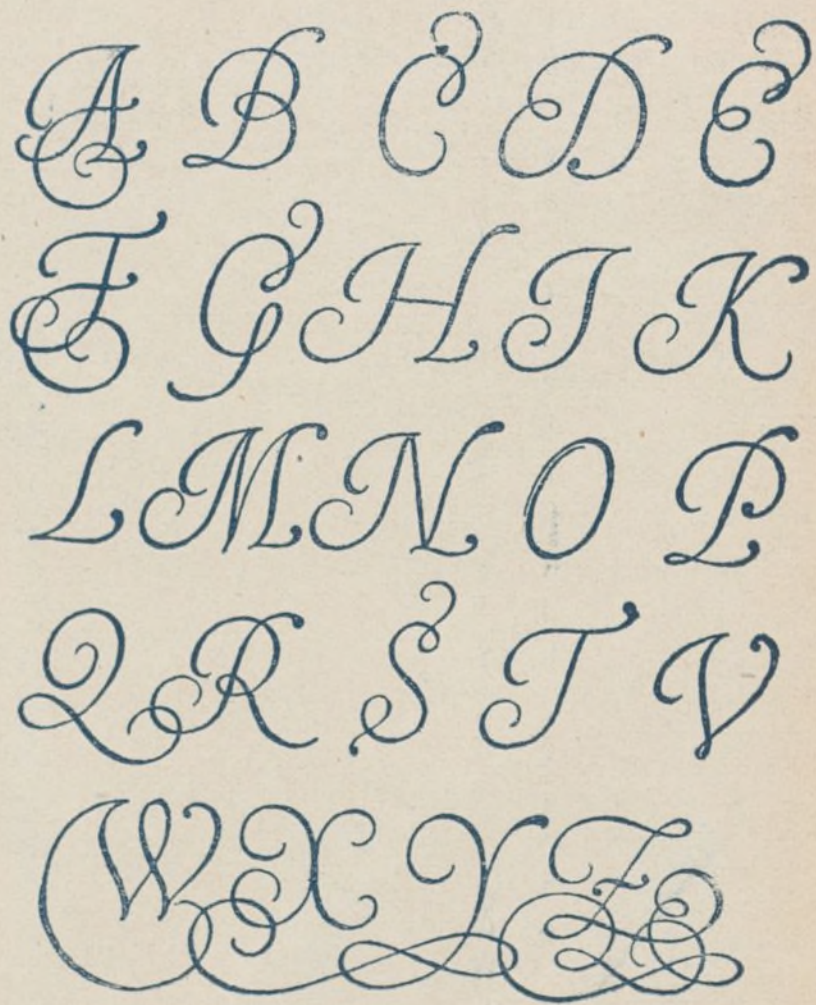 A B C D E
F G H I K
L M N O P
Q R S T V
W X Y Z